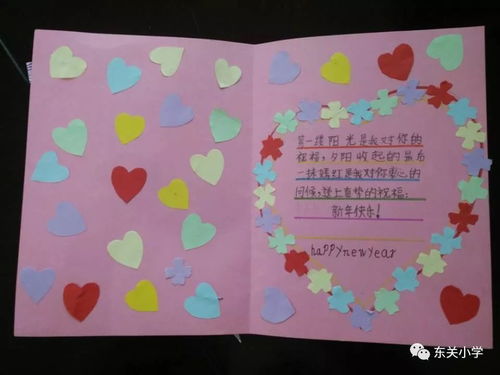 第一缕阳光是我对你的
祝福,夕阳收起的最后
一抹嫣红是我对你衷心的
问候,送上真挚的祝福:
新年快乐!
haPPy new year
东关小学